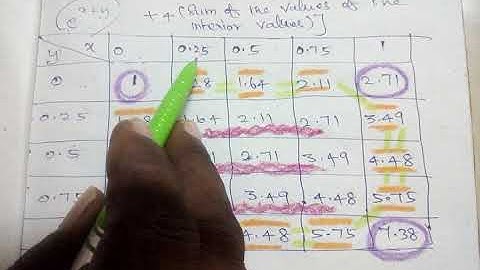 e^x+y + 4 (Sum of the values of the
interior values)]
y x 0 0.25 0.5 0.75 1
0 1 1.64 2.11 2.71
0.25 2.11 2.71 3.49
0.5 2.71 3.49 4.48
0.75 3.49 4.48 5.75
4.48 5.75 7.38